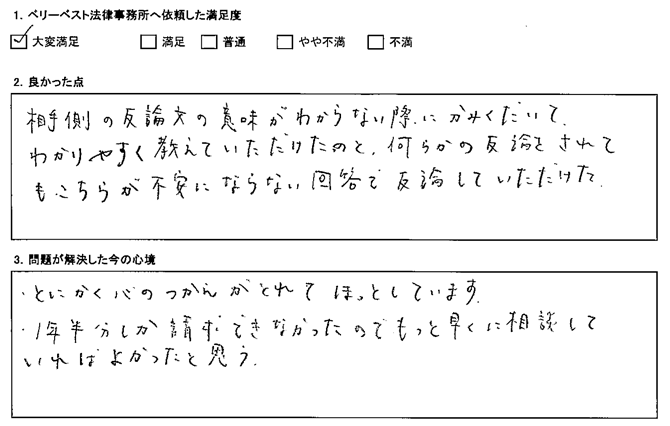 1. ベリーベスト法律事務所へ依頼した満足度
☑ 大変満足 □ 満足 □ 普通 □ やや不満 □ 不満
2. 良かった点
相手側の反論文の意味がわからない際にかみくだいて、
わかりやすく教えていただけたのと、何らかの反論をされて
もこちらが不安にならない回答で反論していただけた。
3. 問題が解決した今の心境
・とにかく心のつかえがとれてほっとしています。
・1年半分しか請求できなかったのでもっと早くに相談して
いればよかったと思う。